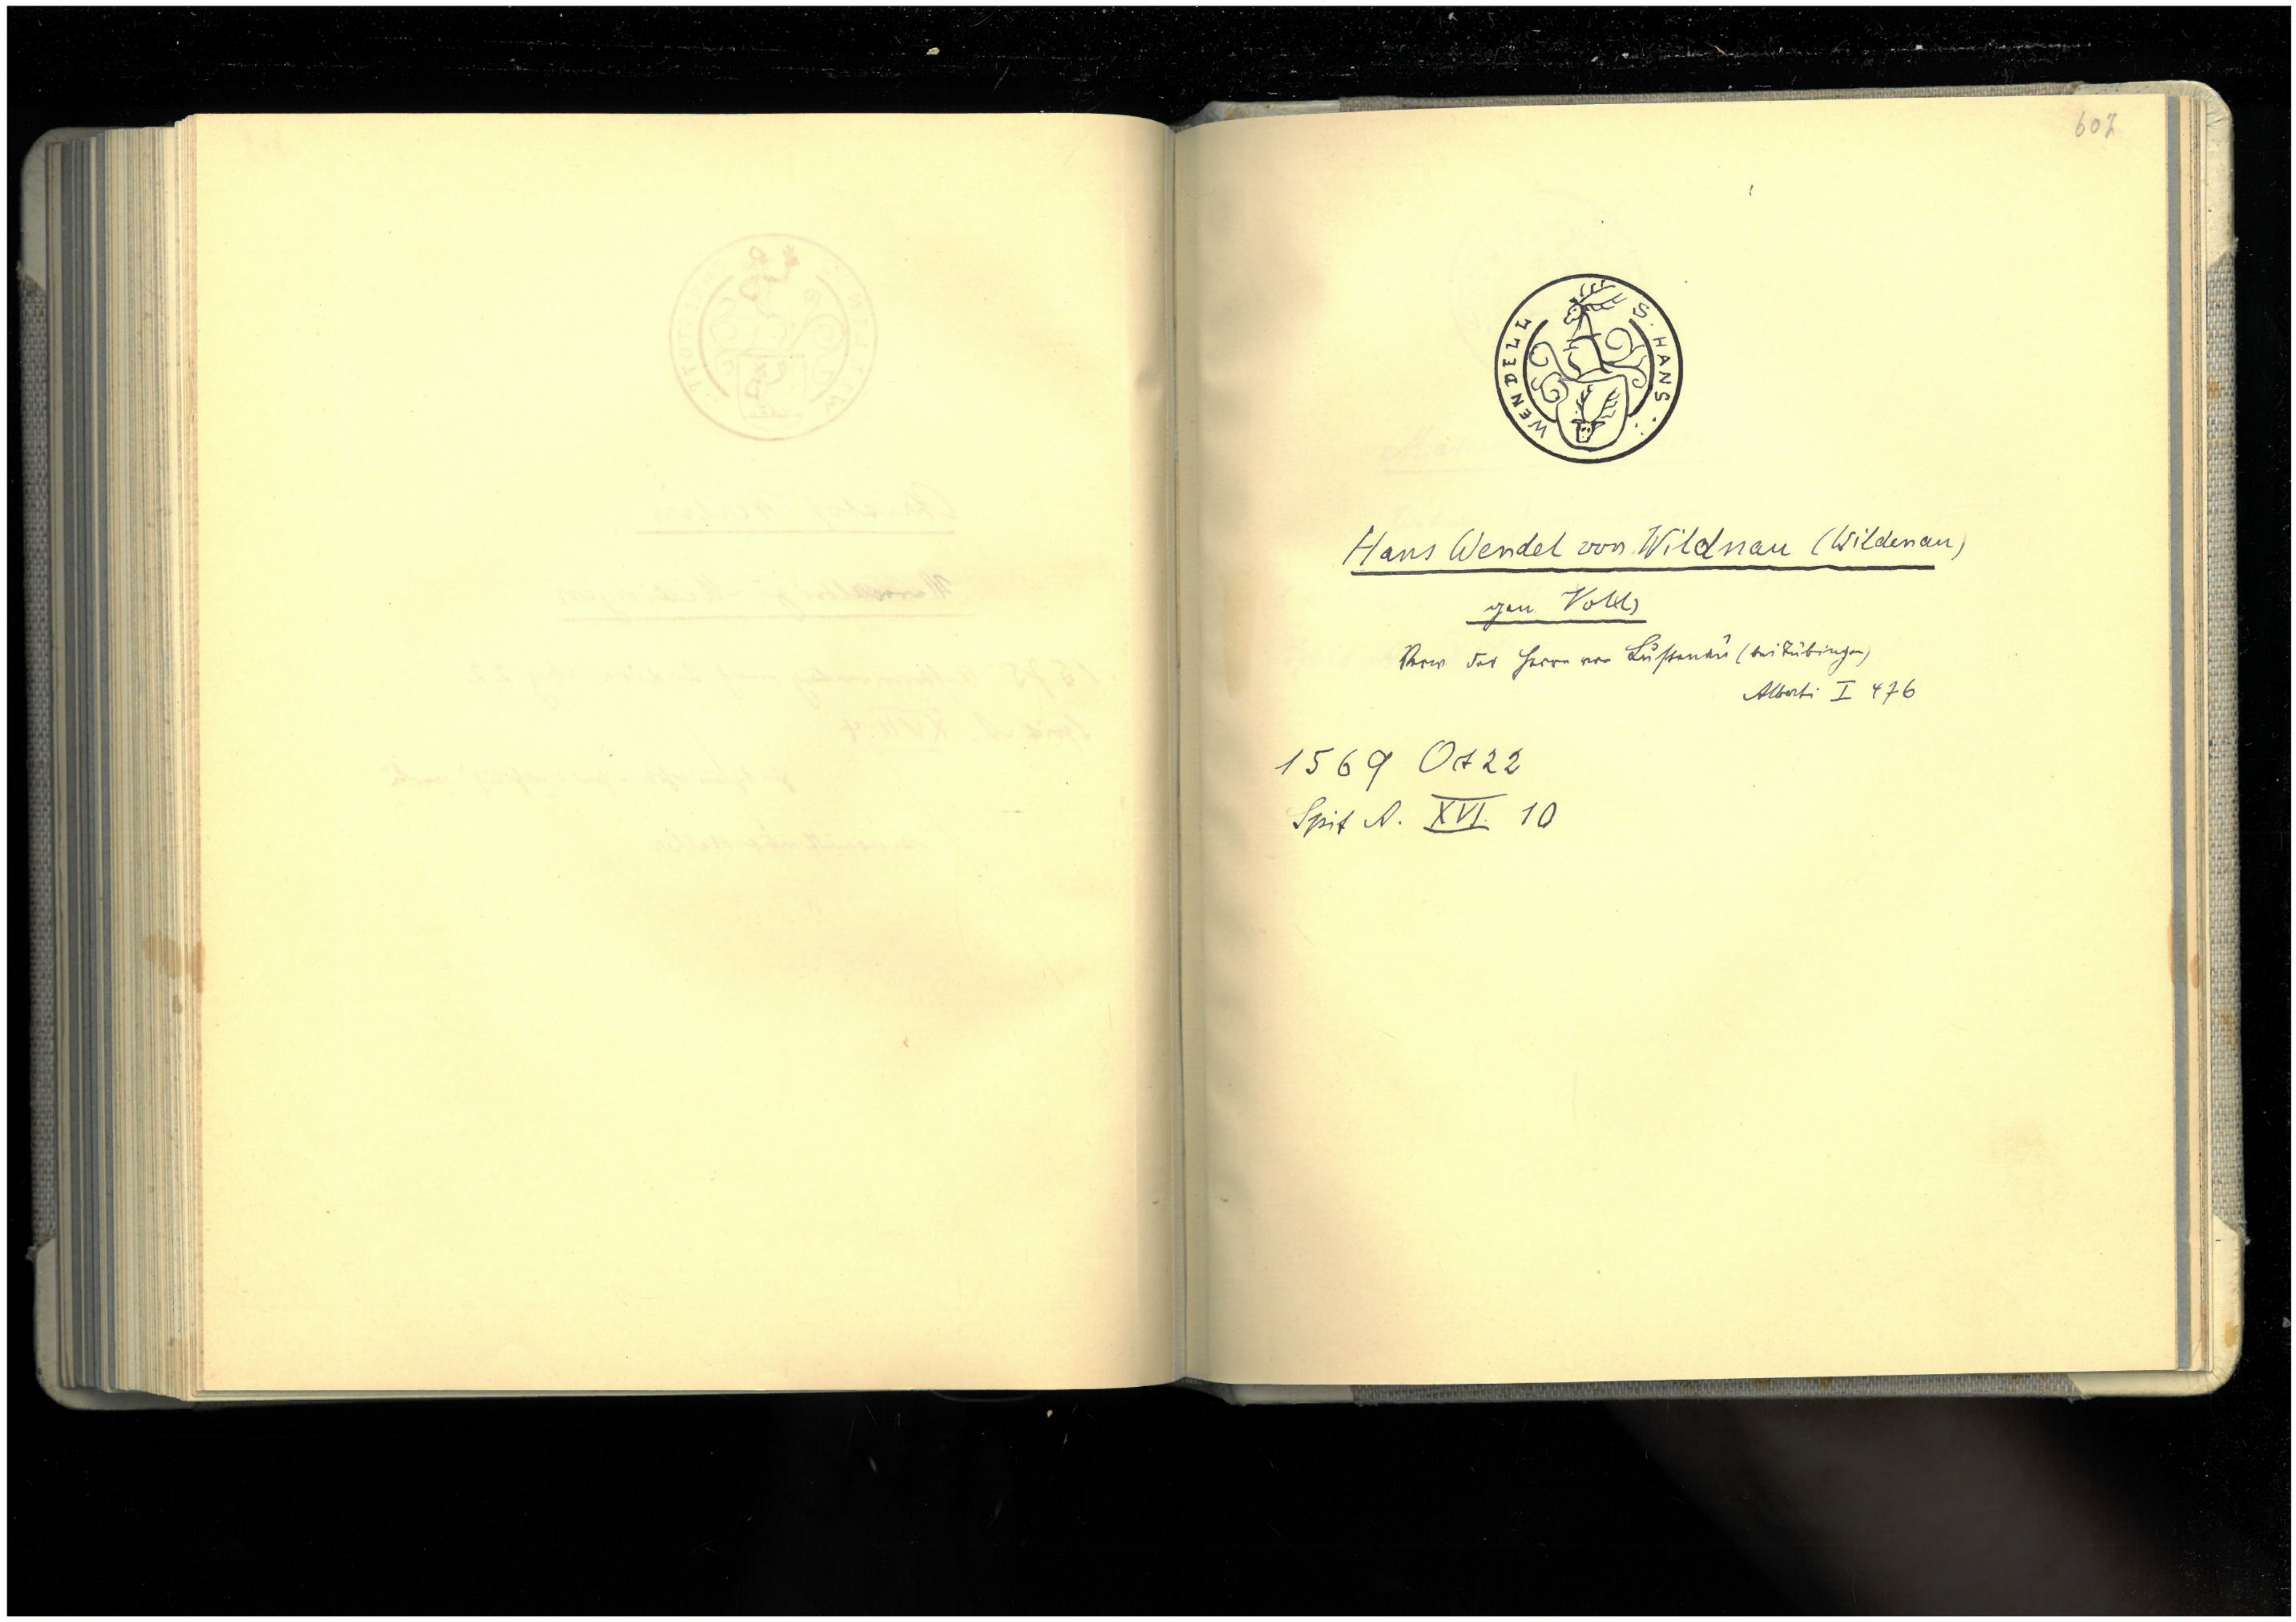 607
S. HANS : WENDELL
Hans Wendel von Wildnau (Wildenau)
gen
der Herrn von Lustenau (bei Tübingen)
Alberti I 476
1569 Okt 22
Spit A. XVI. 10